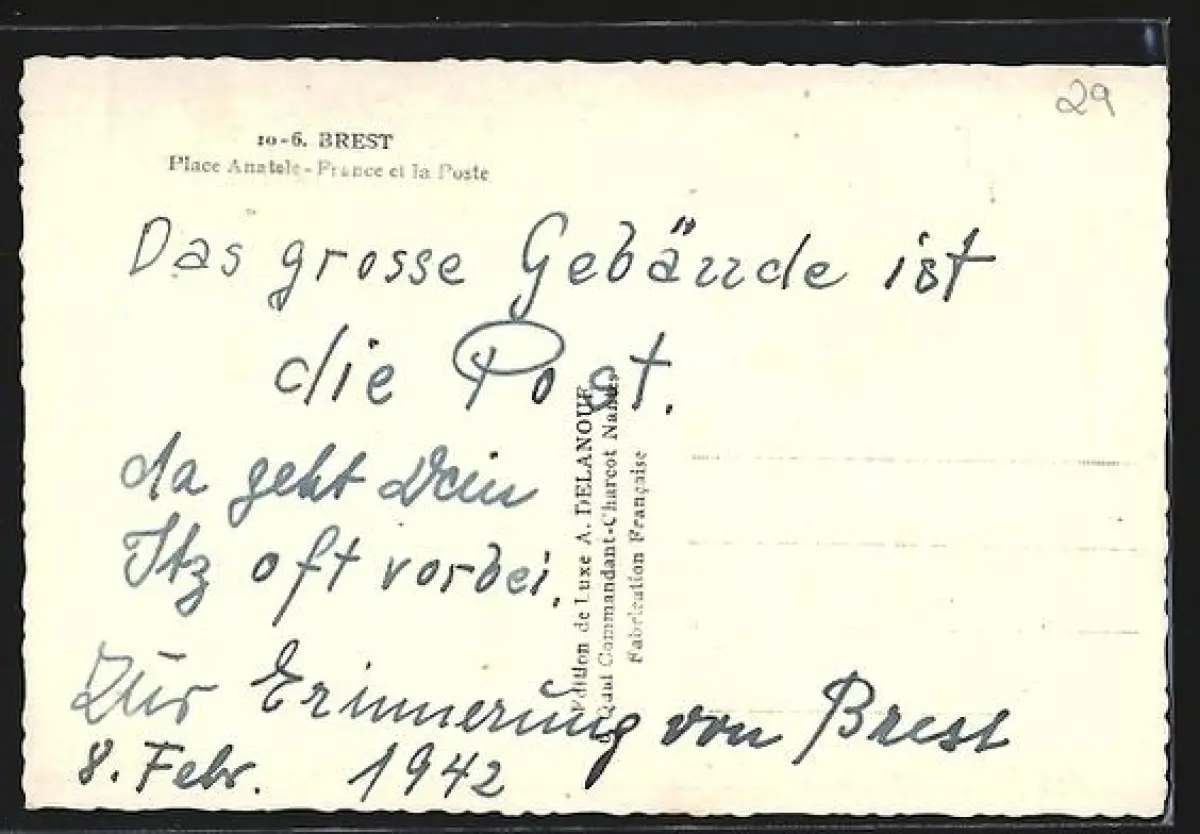 29
10-6. BREST
Place Anatole-France et la Poste
Das grosse Gebäude ist
die Post.
da geht Dein
Itz oft vorbei.
Zur Erinnerung von Brest
8. Febr. 1942
Edition de Luxe A. DELANOUE
Quai Commandant-Charcot Nantes
Fabrication Française